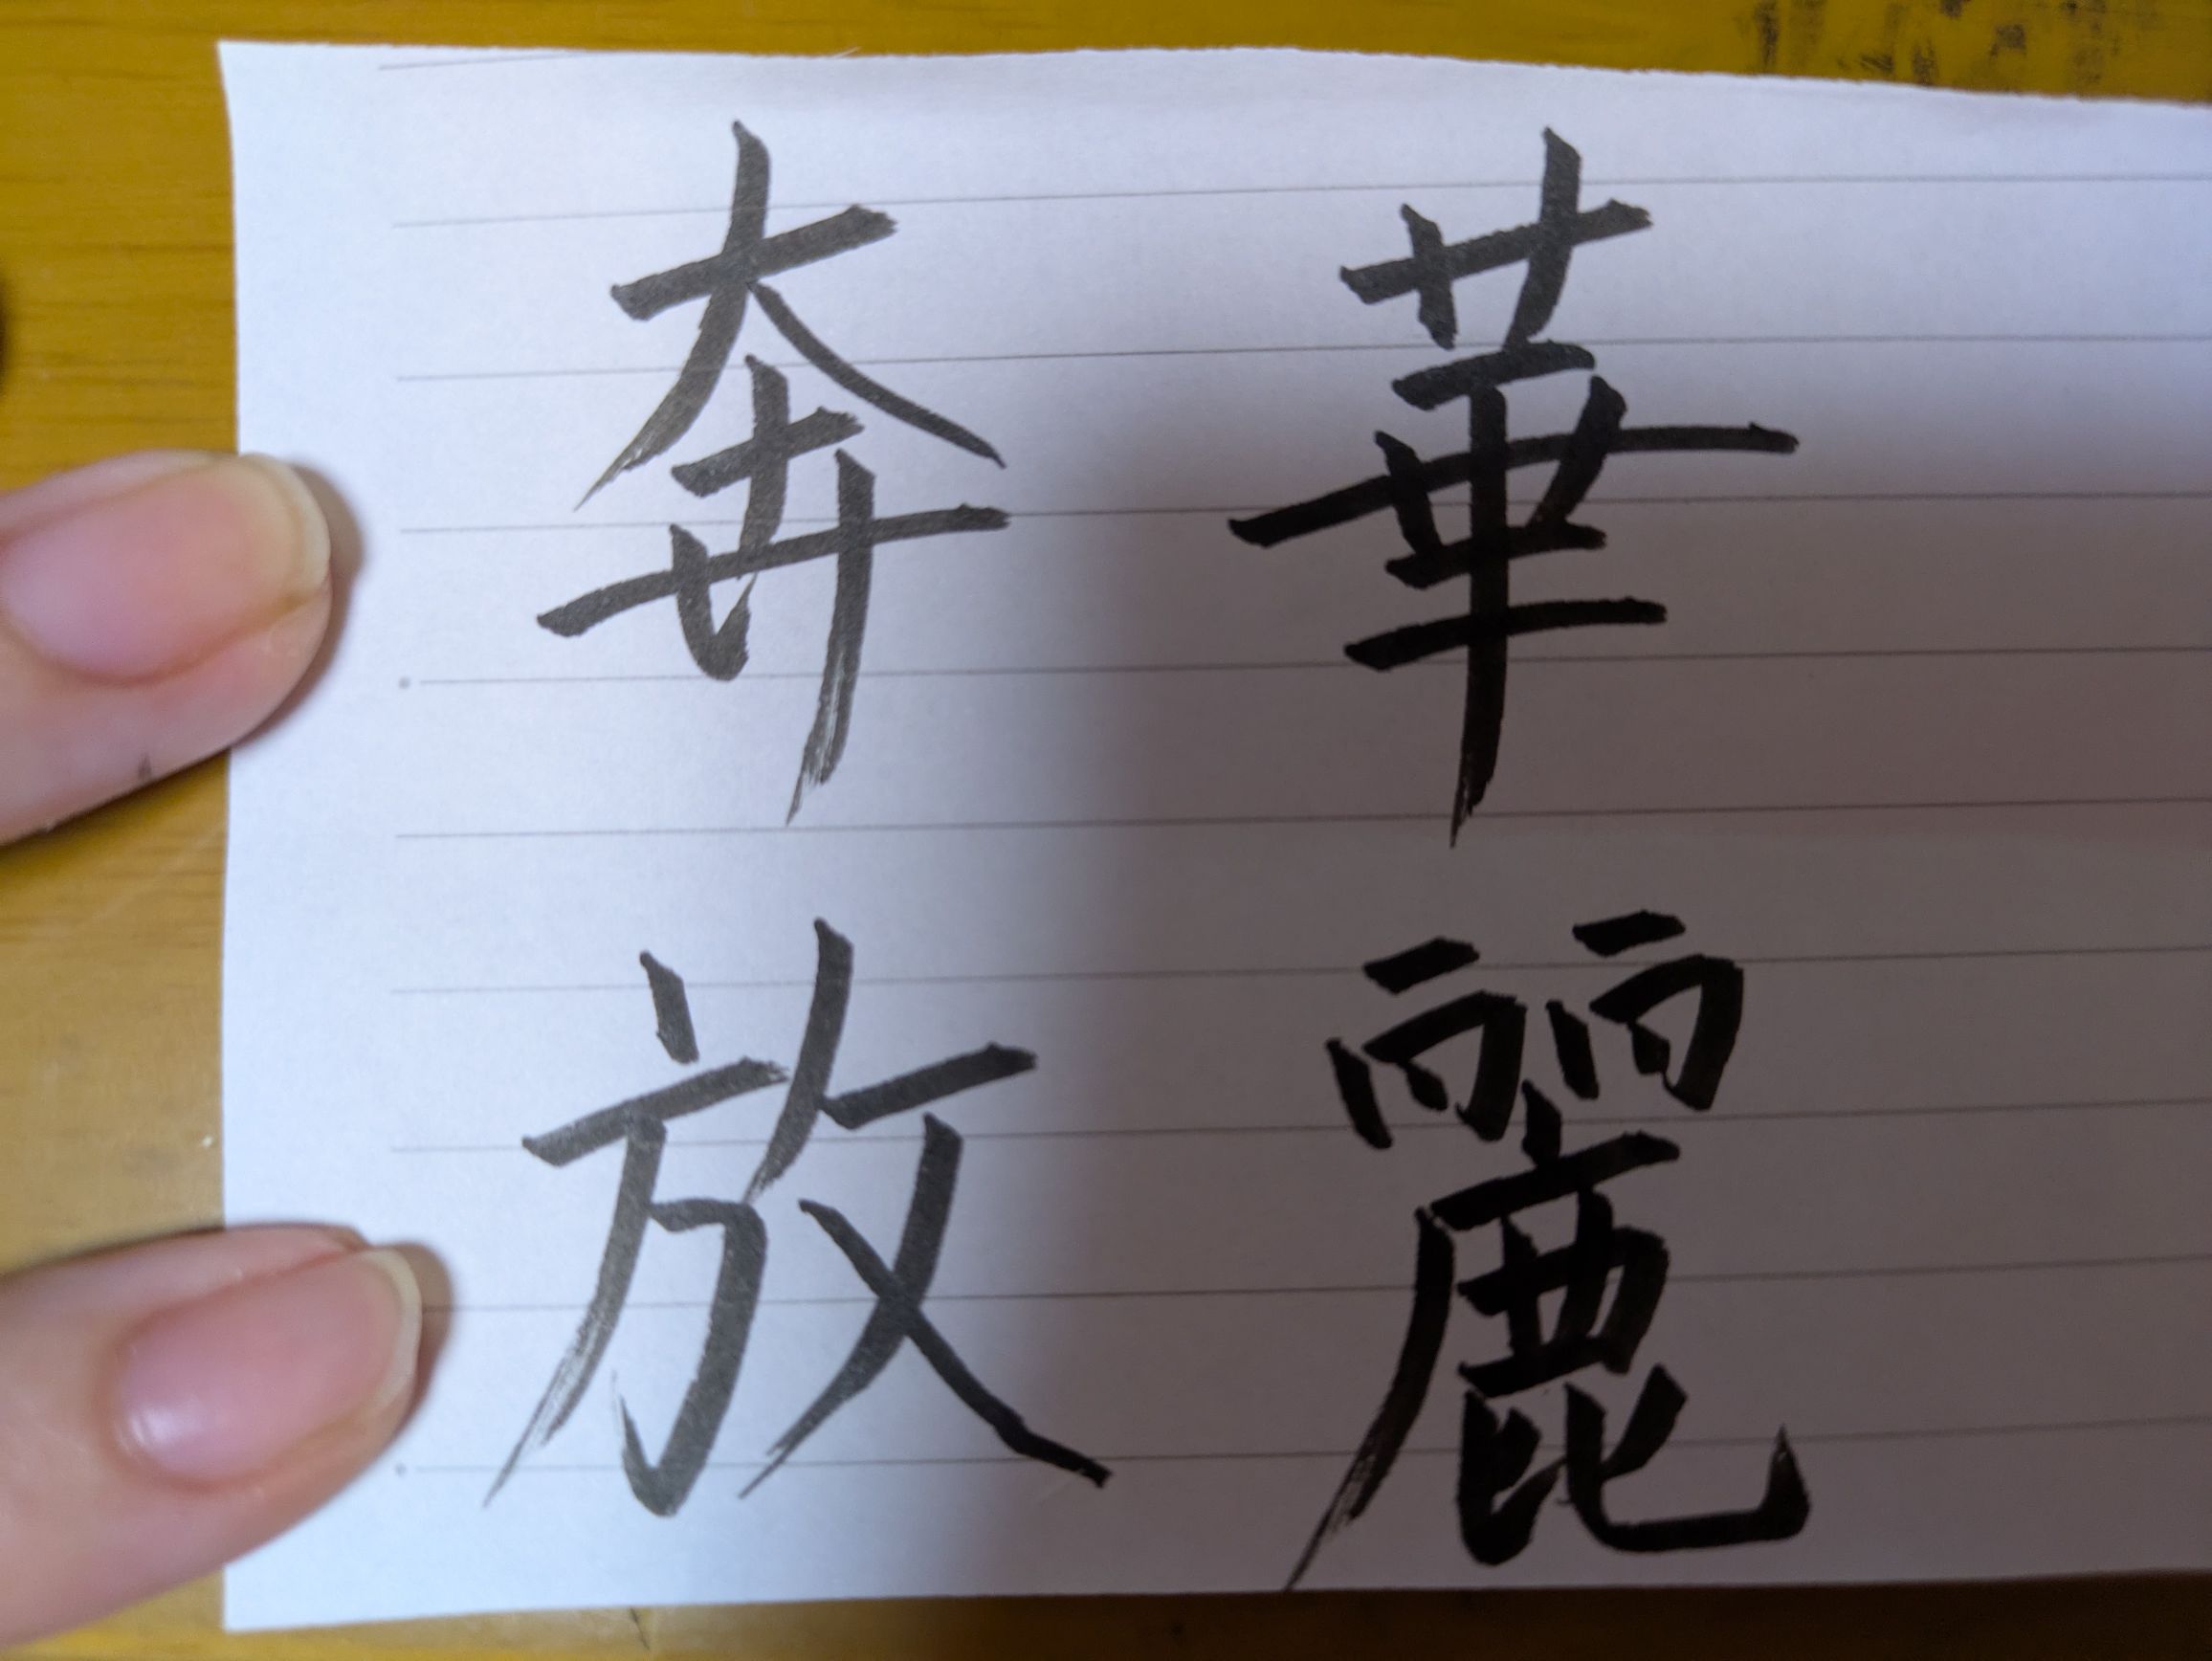 華麗
奔放